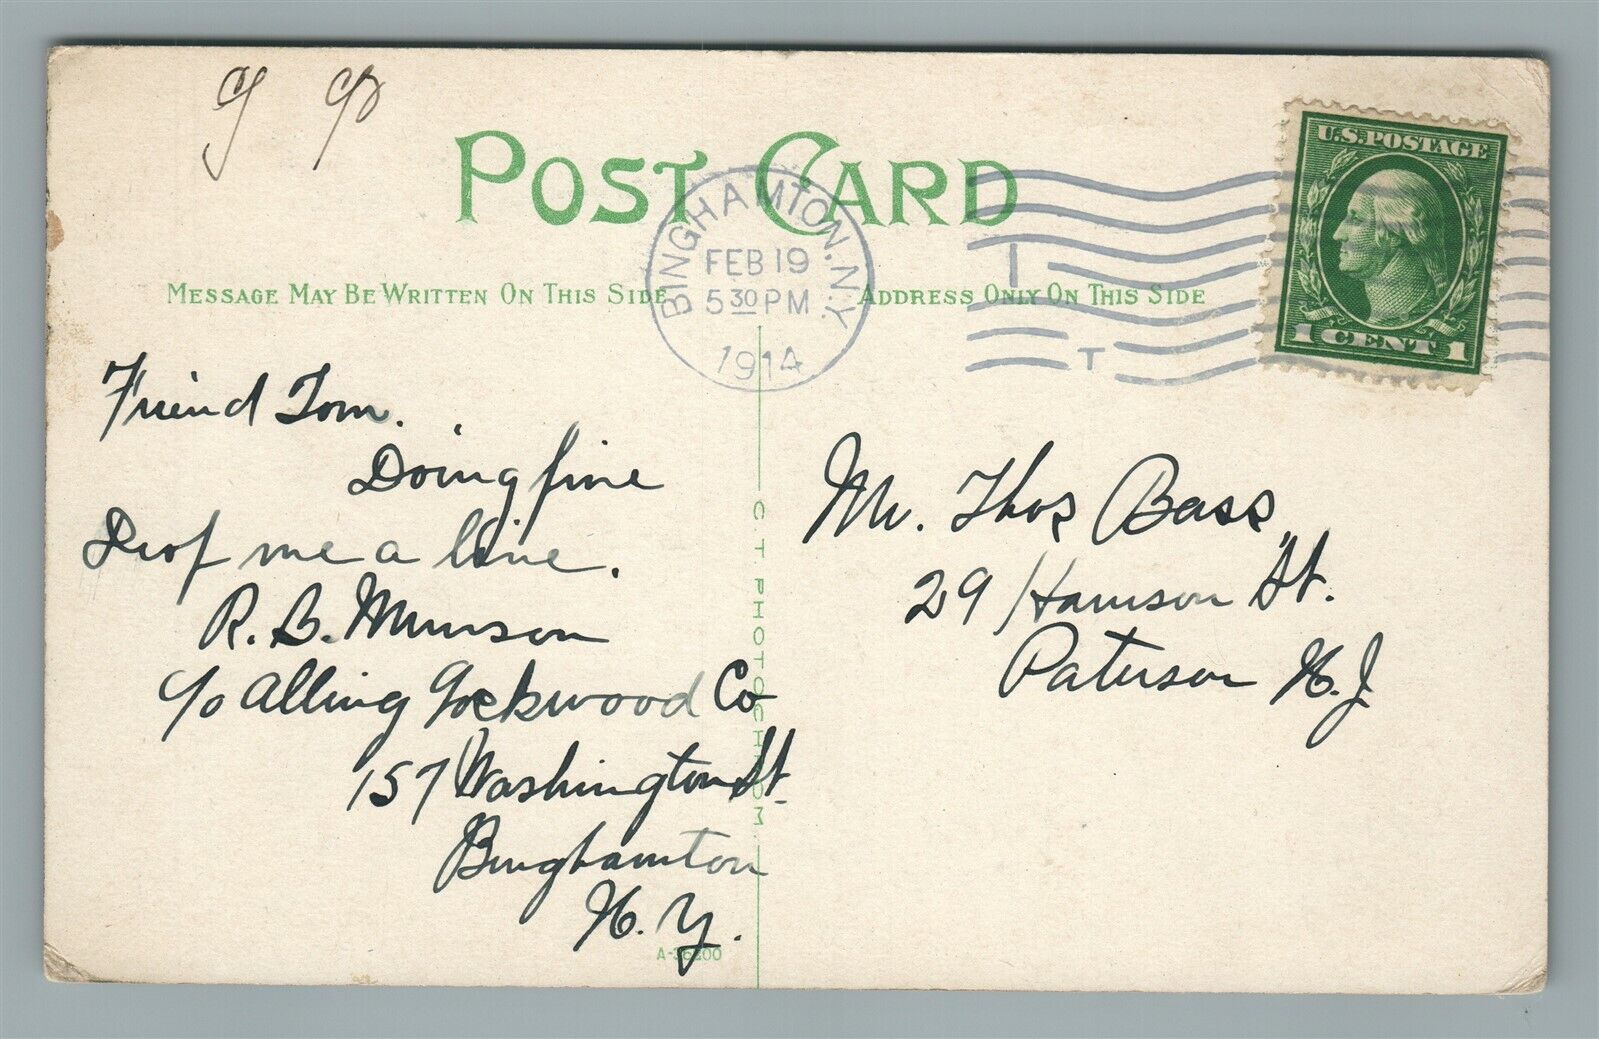 POST CARD
BINGHAMTON, N.Y.
FEB 19
5 30 PM
1914
T
U.S. POSTAGE
1 CENT 1
MESSAGE MAY BE WRITTEN ON THIS SIDE
ADDRESS ONLY ON THIS SIDE
Friend Tom.
Doing fine
Drop me a line.
R. B. Munson
c/o Alling Lockwood Co
157 Washington St.
Binghamton
N. Y.
C. T. PHOTOCHROM
A-36200
Mr. Thos Bass
29 Harrison St.
Paterson N.J.